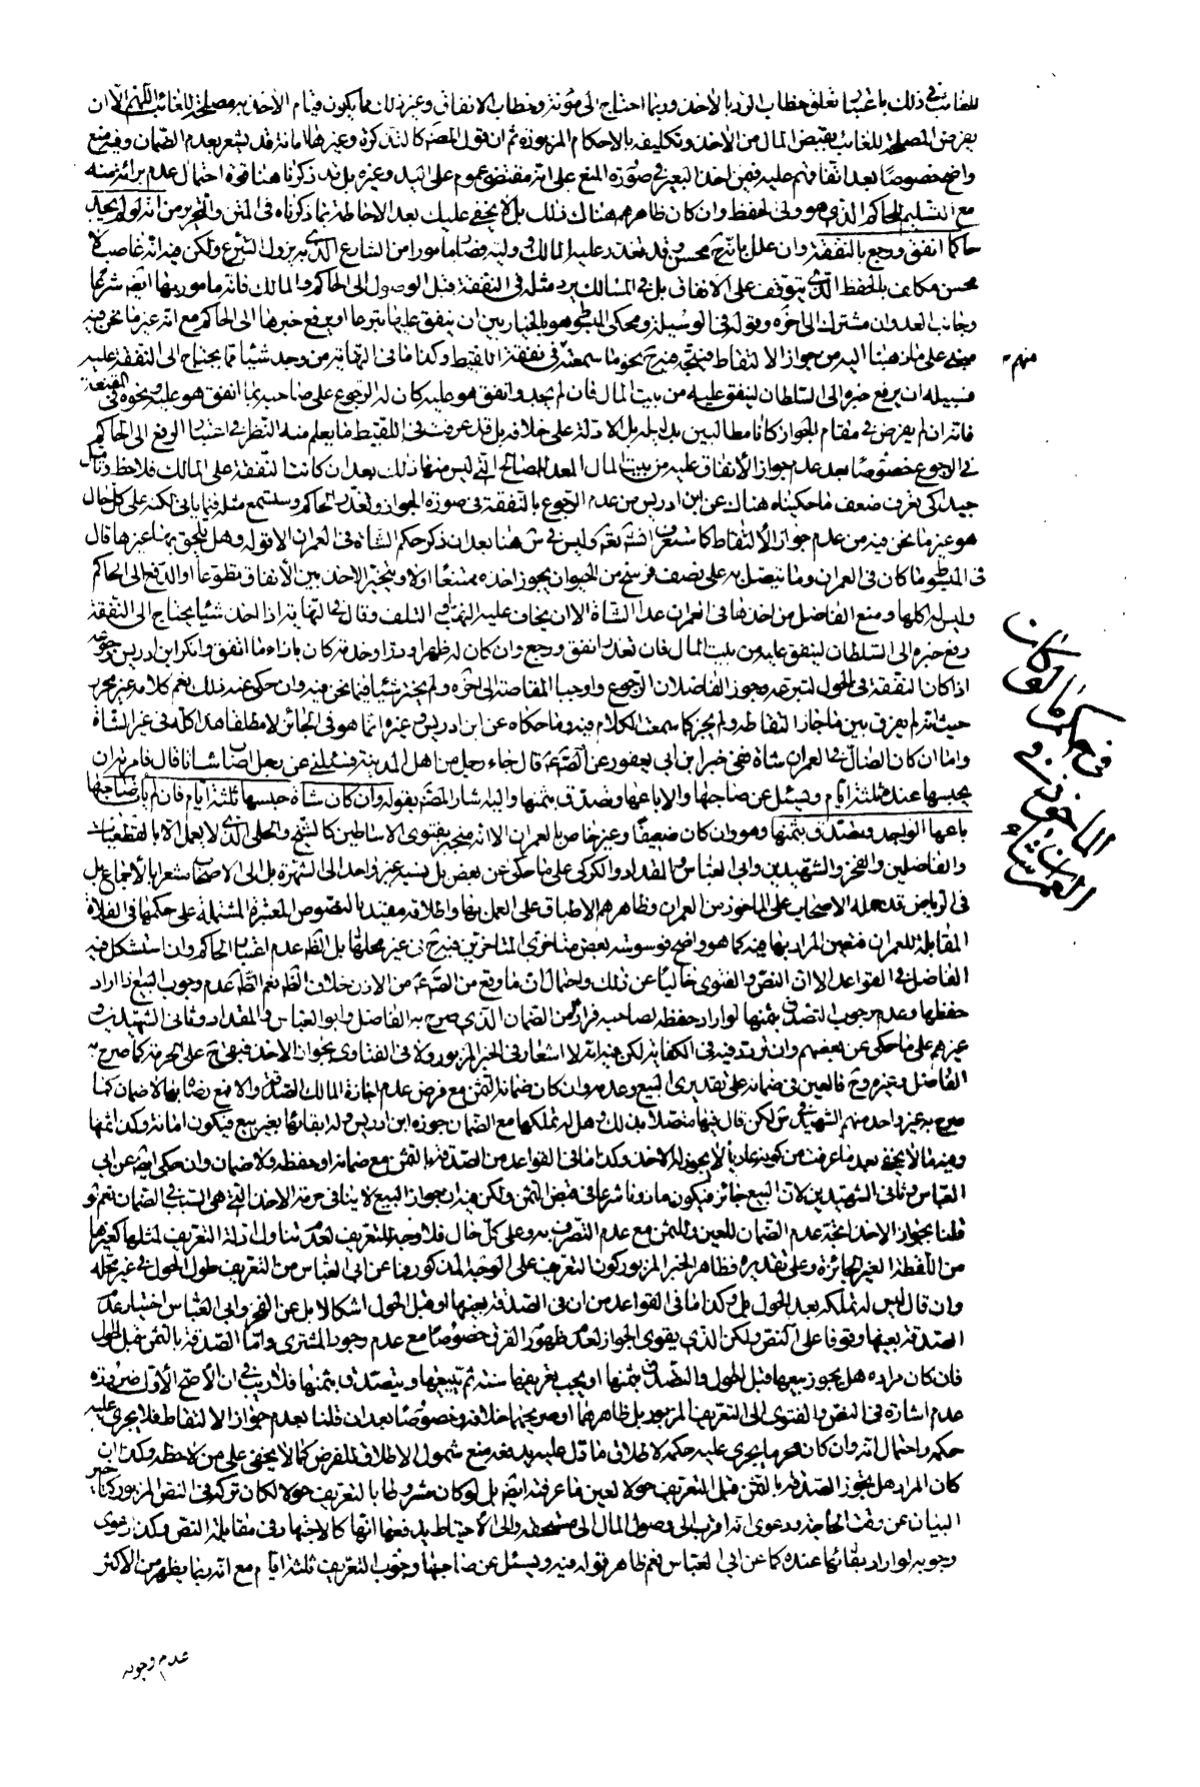 للغائب في ذلك باعتبار تعلق خطاب الرد بالأخذ وربما احتاج الى مؤنة وخطاب الانفاق وغير ذلك مما يكون قيام الأخذ به مصلحة للغائب اللهم الا ان
يفرض المصلحة للغائب بقبض المال من الأخذ وتكليفه بالاحكام المزبورة ثم ان قول المصنف كالتذكرة وغيرها امانة قد يشعر بعدم الضمان وفيه منع
واضح خصوصا بعد اتفاقهم عليه فيمن اخذ البعير في صورة المنع على انه مقتضى عموم على اليد وغيره بل قد ذكرنا هنا قوة احتمال عدم برائته منه
مع التسليم للحاكم الذي هو ولي الحفظ وان كان ظاهرهم هناك ذلك بل لا يخفى عليك بعد الاحاطة بما ذكرناه في المتن والتحرير من انه لو لم يجد
حاكما انفق ورجع بالنفقة وان علل بانه محسن وقد تعذر عليه المالك ووليه فصار مأمورا من الشارع الذي به يزول التبرع ولكن فيه انه غاصب لا
محسن مكلف بالحفظ الذي يتوقف على الانفاق بل في المسالك يرد مثله في النفقة قبل الوصول الى الحاكم والمالك فانه مأمور بها ايضا شرعا
وبجانب العدوان مشترك الى اخره وقوله في الوسيلة ومحكي المبسوط هو بالخيار بين ان ينفق عليها تبرعا او يرفع خبرها الى الحاكم مع انه غير ما نحن فيه
مبني على ما ذهبنا اليه من جواز الالتقاط فيتجه فيه نحو ما سمعته في نفقة اللقيط وكذا ما في النهاية من وجد شيئا مما يحتاج الى النفقة عليه
منهم
فسبيله ان يرفع خبره الى السلطان لينفق عليه من بيت المال فان لم يجد وانفق هو عليه كان له الرجوع على صاحبه بما انفق هو عليه ونحوه في المقنعة
فانه ان لم يفرض في مقام الجواز كانا مطالبين بدليله بل الادلة على خلافه بل قد عرفت في اللقيط ما يعلم منه النظر في اعتبار الرفع الى الحاكم
في الرجوع خصوصا بعد عدم جواز الانفاق عليه من بيت المال المعد للمصالح التي ليس منها ذلك بعد ان كانت النفقة على المالك فلاحظ وتأمل
جيدا كي تعرف ضعف ما حكيناه هناك عن ابن ادريس من عدم الرجوع بالنفقة في صورة الجواز وتعذر الحاكم وستسمع مثله فيما يأتي لكنه على كل حال
هو غير ما نحن فيه من عدم جواز الالتقاط كما ستعرف انشاء الله نعم وليس في ش هنا بعد ان ذكر حكم الشاة في العمران الا قوله وهل يلحق بها غيرها قال
في المبسوط ما كان في العمران وما يتصل به على نصف فرسخ من الحيوان يجوز اخذه ممتنعا اولا ويتخير الاخذ بين الانفاق تطوعا او الدفع الى الحاكم
وليس له اكلها ومنع الفاضل من اخذها في العمران عدا الشاة الا ان يخاف عليه النهب او التلف وقال في النهاية اذا اخذ شيئا يحتاج الى النفقة
رفع خبره الى السلطان لينفق عليه من بيت المال فان تعذر انفق ورجع وان كان له ظهر او در او خدمة كان بازاء ما انفق وانكر ابن ادريس رجوعه
اذا كان النفقة في الحول لتبرعه وجوز الفاضلان الرجوع واوجبا المقاصة الى اخره ولم يخير شيئا فيما نحن فيه وان حكي عنه ذلك نعم كلامه غير محرر
حيث انه لم يفرق بين ما جاز التقاطه ولم يجز كما سمعت الكلام فيه وما حكاه عن ابن ادريس وغيره انما هو في الجائز لا مطلقا هذا كله في غير الشاة
واما ان كان الضال في العمران شاة ففي خبر ابن ابي يعفور عن الصادق عليه السلام قال جاء رجل من اهل المدينة فسئلني عن رجل اصاب شاة قال فامرته ان
يحبسها عنده ثلثة ايام ويسئل عن صاحبها والا باعها وتصدق بثمنها واليه اشار المصنف بقوله وان كان شاة حبسها ثلثة ايام فان لم يات صاحبها
باعها الواجد وتصدق بثمنها وهو وان كان ضعيفا وغير خاص بالعمران الا انه منجبر بفتوى الاساطين كالشيخ والحلي الذي لا يعمل الا بالقطعيات
والفاضلين والفخر والشهيدين وابي العباس والمقداد والكركي على ما حكي عن بعض بل نسبه غير واحد الى الشهرة بل الى الاصحاب مشعرا بالاجماع بل
في الرياض قد حمله الاصحاب على المأخوذ من العمران وظاهرهم الاطباق على العمل بها واطلاقه مقيد بالنصوص المعتبرة المشتملة على حكمها في الفلاة
المقابلة للعمران فتعين المراد بها فيه كما هو واضح فوسوسة بعض متأخري المتاخرين فيه في غير محلها بل الظاهر عدم اعتبار الحاكم وان استشكل فيه
الفاضل في القواعد الا ان النص والفتوى خاليا عن ذلك واحتمال ان ما وقع من الصادق من الاذن خلاف الظاهر نعم الظاهر عدم وجوب البيع لو اراد
حفظها وعدم وجوب التصدق بثمنها لو اراد حفظه لصاحبه فرارا من الضمان الذي صرح به الفاضل وابو العباس والمقداد وثاني الشهيدين و
غيرهم على ما حكي عن بعضهم وان تردد فيه في الكفاية لكن فيه انه لا اشعار في الخبر المزبور ولا في الفتاوى بجواز الاخذ فيبقى ح على الحرمة كما صرح به
الفاضل وغيره وح فالعين في ضمانه على تقديري البيع وعدمه وان كان ضمانه الثمن مع فرض عدم اجازة المالك الصدقة والا فمع رضائه بها لا ضمان كما
صرح به غير واحد منهم الشهيد في ش لكن قال فيها متصلا بذلك وهل له تملكها مع الضمان جوزه ابن ادريس وله ابقائها بغير بيع فيكون امانة وكذا ثمنها
وفيه ما لا يخفى بعد ما عرفت من كونه عاديا لا يجوز له الاخذ وكذا ما في القواعد من الصدقة بالثمن مع ضمانه او حفظه ولا ضمان وان حكي ايضا عن ابي
العباس وثاني الشهيدين لان البيع جائز فيكون ماذونا شرعا في قبض الثمن ولكن فيه ان جواز البيع لا ينافي حرمة الاخذ التي هي السبب في الضمان نعم لو
قلنا بجواز الاخذ اتجه عدم الضمان للعين وللثمن مع عدم التصرف به وعلى كل حال فلا وجه للتعريف لعدم تناول ادلة التعريف لمثلها كغيرها
من اللقطة الغير الجائزة وعلى تقديره فظاهر الخبر المزبور كون التعريف على الوجه المذكور فما عن ابي العباس من التعريف طول الحول في غير محله
وان قال ليس له تملكه بعد الحول بل وكذا ما في القواعد من ان في الصدقة بعينها او قبل الحول اشكالا بل عن الفخر وابي العباس اختيار عدم
الصدقة بعينها وقوفا على النص ولكن الذي يقوى الجواز لعدم ظهور الفرق خصوصا مع عدم وجود المشتري واما الصدقة بالثمن قبل الحول
فان كان مراده هل يجوز بيعها قبل الحول والتصدق بثمنها او يجب تعريفها سنة ثم يبيعها ويتصدق بثمنها فلا ريب في ان الاصح الاول ضرورة
عدم اشارة في النص والفتوى الى التعريف المزبور بل ظاهرهما او صريحهما خلافه وخصوصا بعد ان قلنا بعدم جواز الالتقاط فلا يجري عليه
حكمه واحتمال انه وان كان محرما يجري عليه حكمه لاطلاق ما دل عليه يدفعه منع شمول الاطلاق للفرض كما لا يخفى على من لاحظه وكذا ان
كان المراد هل يجوز الصدقة بالثمن قبل التعريف حولا لعين ما عرفته ايضا بل لو كان مشروطا بالتعريف حولا لكان تركه في النص المزبور تاخير
البيان عن وقت الحاجة ودعوى انه اقرب الى وصول المال الى مستحقه والى الاحتياط يدفعها انها كالاجتهاد في مقابلة النص وكذا دعوى
وجوبه لو اراد بقائها عنده كما عن ابي العباس نعم ظاهر قوله فيه ويسئل عن صاحبها وجوب التعريف ثلثة ايام مع انه ربما يظهر من الاكثر
عدم وجوبه
في حكم ما لو كان
الماخوذ في
العمران شاة